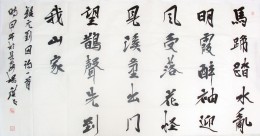 馬蹄踏水亂
明霞醉袖迎
風受落花怪
見溪童出門
望鵲聲先到
我山家
錄元劉因詩一首